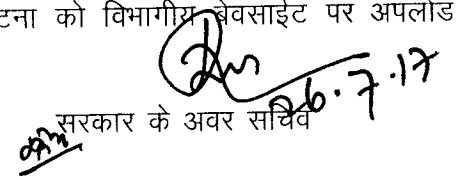 टना को विभागीय बेवसाईट पर अपलोड
26.7.17
सरकार के अवर सचिव